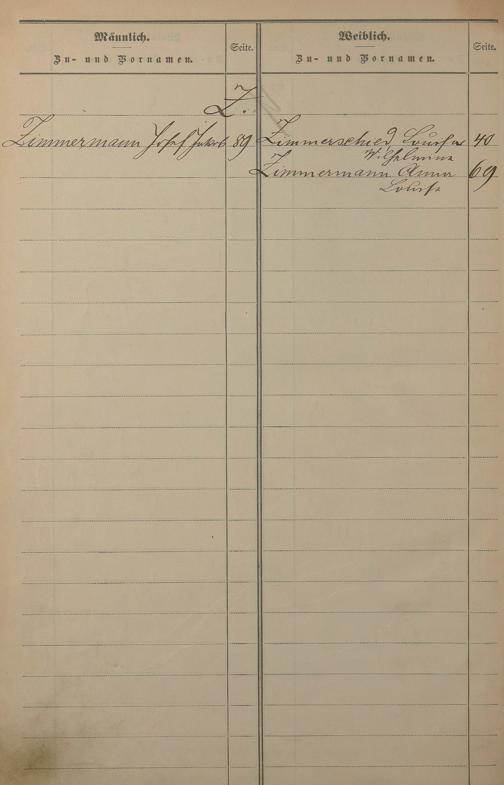 Männlich.
Zu- und Vornamen.
Seite.
Weiblich.
Zu- und Vornamen.
Seite.
Z.
Zimmermann Josef Jakob 89
Zimmerschied Louise 40
Wilhelmine
Zimmermann Anna 69
Louise